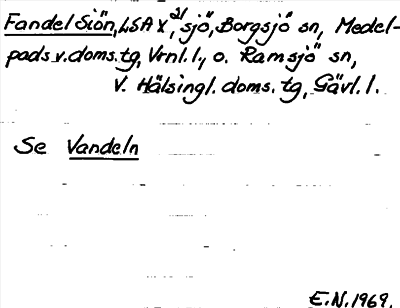 Fandel Siön, LSA X, 21/ sjö, Borgsjö sn, Medel-
pads v. doms. tg, Vrnl. l., o. Ramsjö sn,
V. Hälsingl. doms. tg, Gävl. l.
Se Vandeln
E.N. 1969.